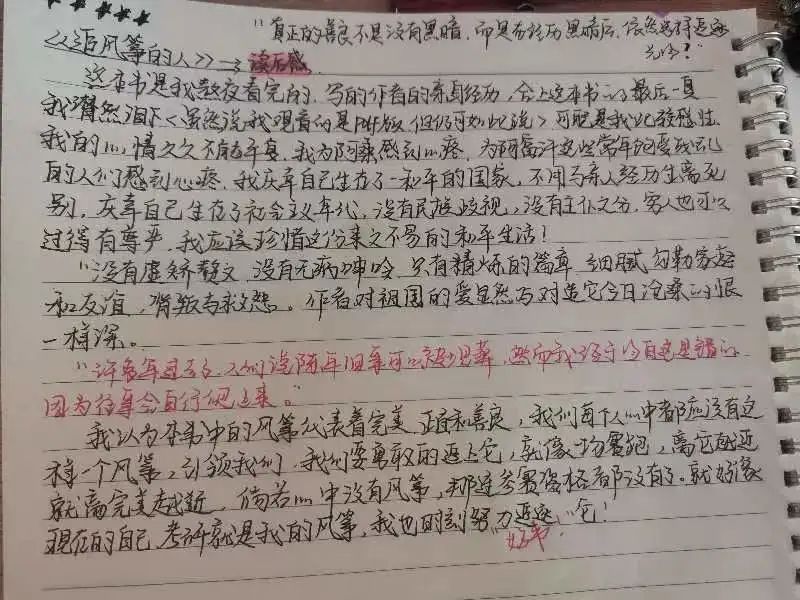 "真正的善良不是没有黑暗,而是在经历黑暗后,依然选择追逐
光明?"
《追风筝的人》→读后感
这本书是我熬夜看完的,写的作者的亲身经历,合上这本书的最后一页
我潸然泪下<虽然说我观看的是PDF版但仍可如此说>可能是我比较感性
我的心情久久不能平复,我为阿桑感到心疼,为阿富汗这些常年饱受战乱
的人们感到心疼,我庆幸自己生在了一和平的国家,不用与亲人经历生离死
别,庆幸自己生在了社会主义年代,没有民族歧视,没有主仆之分,穷人也可以
过得有尊严,我应该珍惜这份来之不易的和平生活!
"没有虚矫赘文,没有无病呻吟,只有精炼的篇章,细腻勾勒家庭
和友谊,背叛与救赎。作者对祖国的爱显然与对造它今日沧桑的恨
一样深。
"许多年过去了,人们说陈年旧事可以被埋葬,然而我终于明白这是错的
因为往事会自行爬上来。"
我认为本书中的风筝代表着完美正直和善良,我们每个人心中都应该有这
样一个风筝,引领我们,我们要勇敢的追上它,就像一场赛跑,离它越近
就离完美越近,倘若心中没有风筝,那连参赛资格都没有了。就好像
现在的自己,考研就是我的风筝,我也时刻努力"追逐"它!
好书